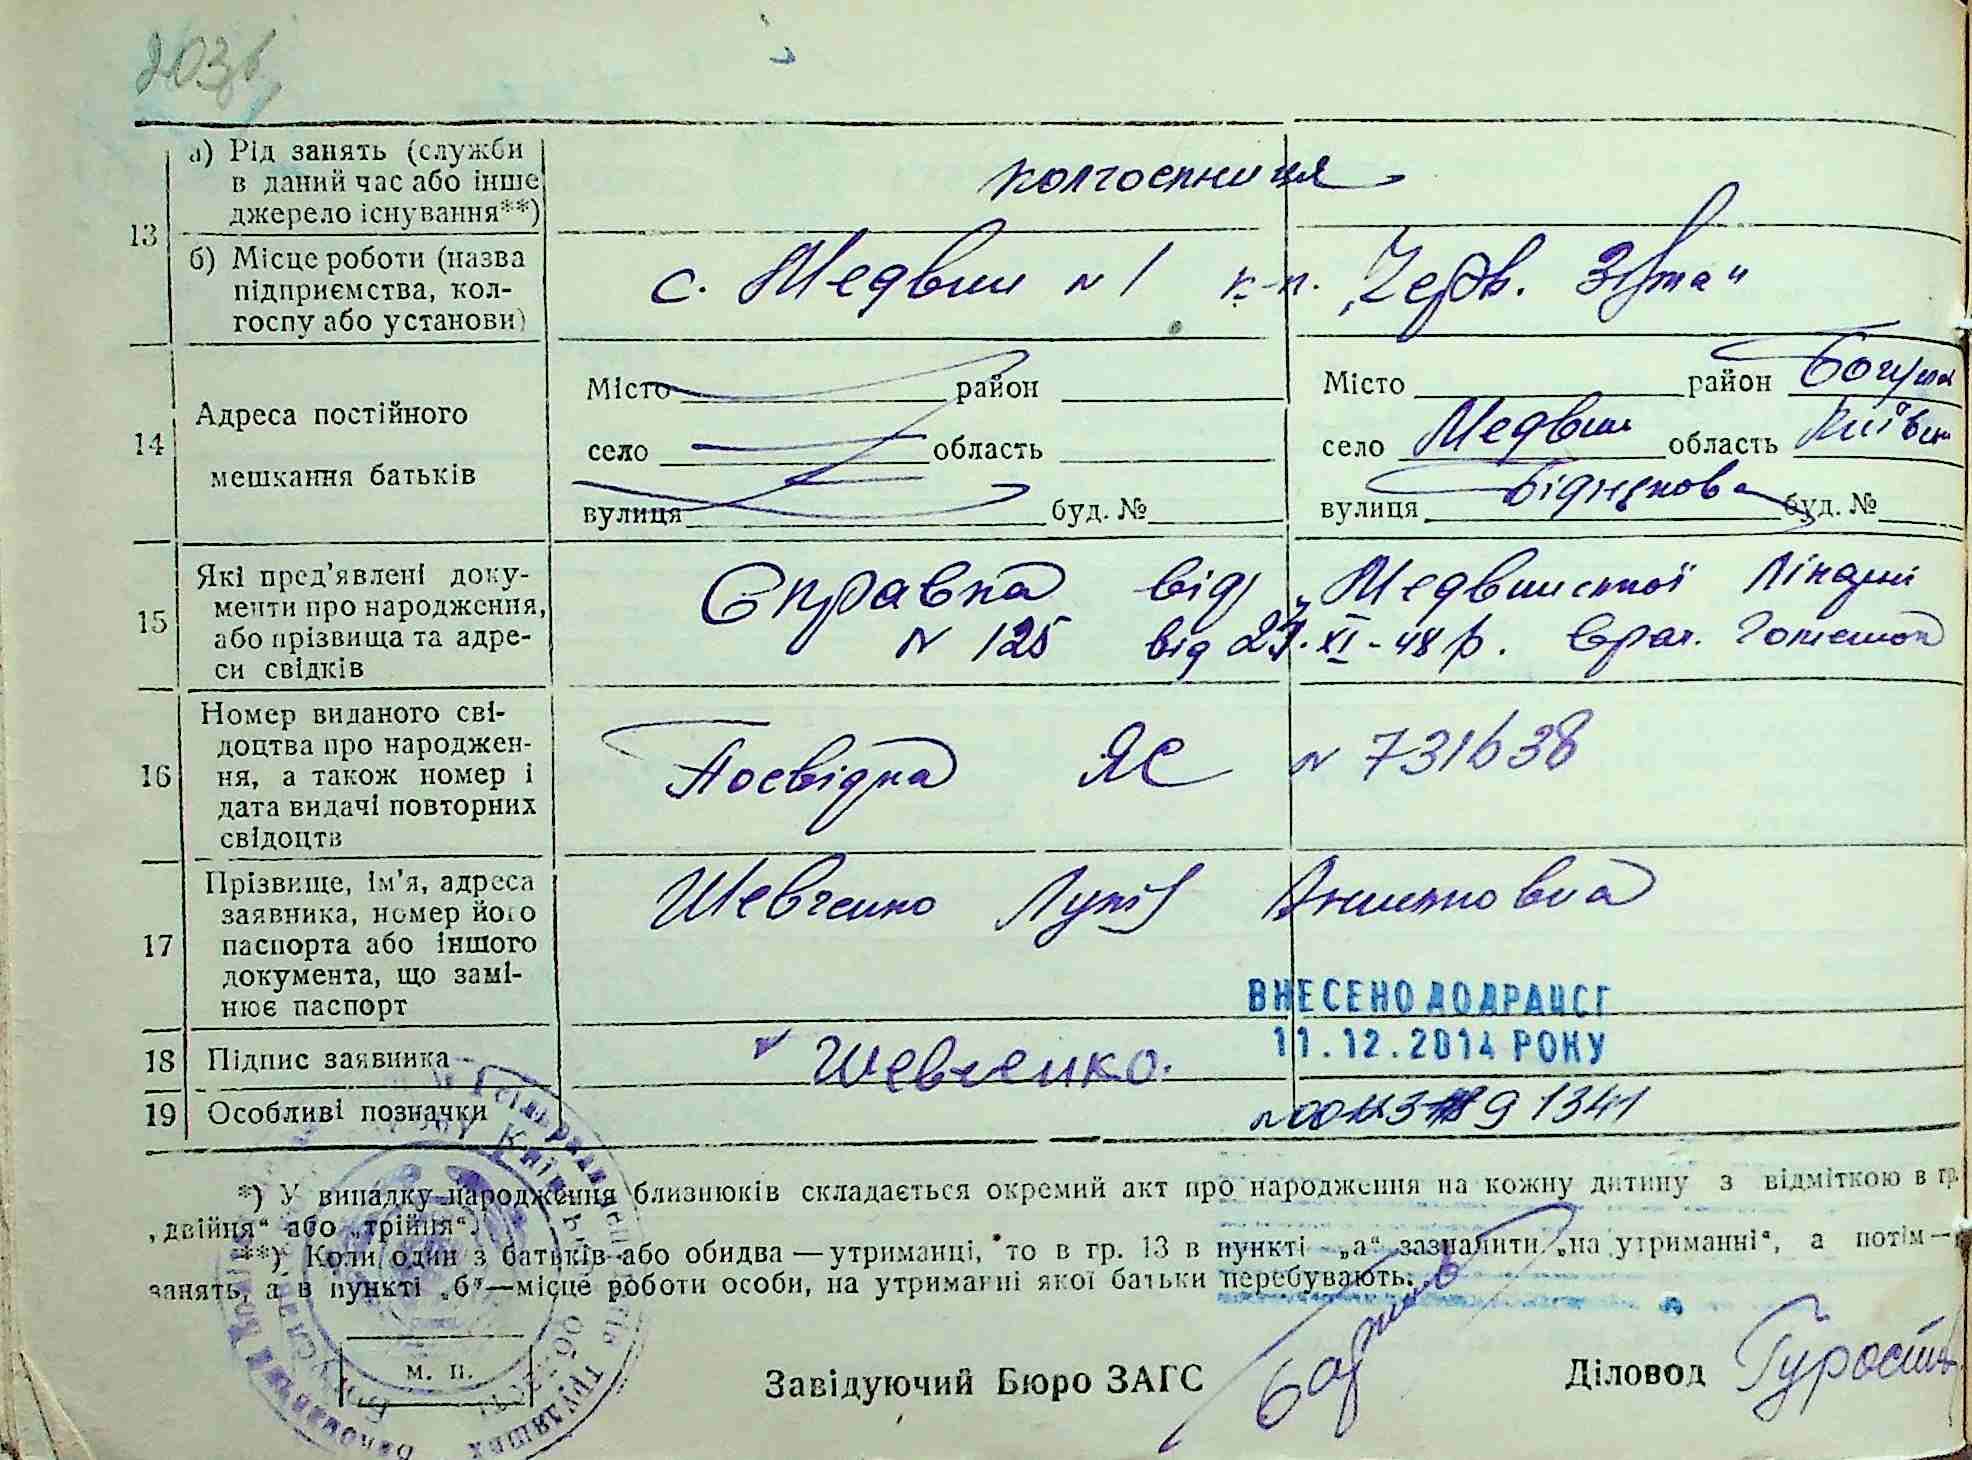 203б
13
а) Рід занять (служби
в даний час або інше
джерело існування**)
колгоспниця
б) Місце роботи (назва
підприємства, кол-
госпу або установи)
с. Медвин №1 к-п. „Черв. Зірка"
14
Адреса постійного
мешкання батьків
Місто район
село область
вулиця буд. №
Місто район Богусла
село Медвин область Київсь
вулиця Бідняков буд. №
15
Які пред'явлені доку-
менти про народження,
або прізвища та адре-
си свідків
Справка від Медвинської Лікарні
№ 125 від 27.XI-48 р.
16
Номер виданого сві-
доцтва про народжен-
ня, а також номер і
дата видачі повторних
свідоцтв
Посвідка ЯС № 731638
17
Прізвище, ім'я, адреса
заявника, номер його
паспорта або іншого
документа, що замі-
нює паспорт
Шевченко
ВНЕСЕНО ДО ДРАЦСГ
11.12.2014 РОКУ
18
Підпис заявника
Шевченко.
19
Особливі позначки
*) У випадку народження близнюків складається окремий акт про народження на кожну дитину з відміткою в гр.
„двійня“ або „трійня“.
**) Коли один з батьків або обидва — утриманці, то в гр. 13 в пункті „а“ зазначити „на утриманні“, а потім —
занять, а в пункті „б“—місце роботи особи, на утриманні якої батьки перебувають.
м. п.
Завідуючий Бюро ЗАГС
Діловод